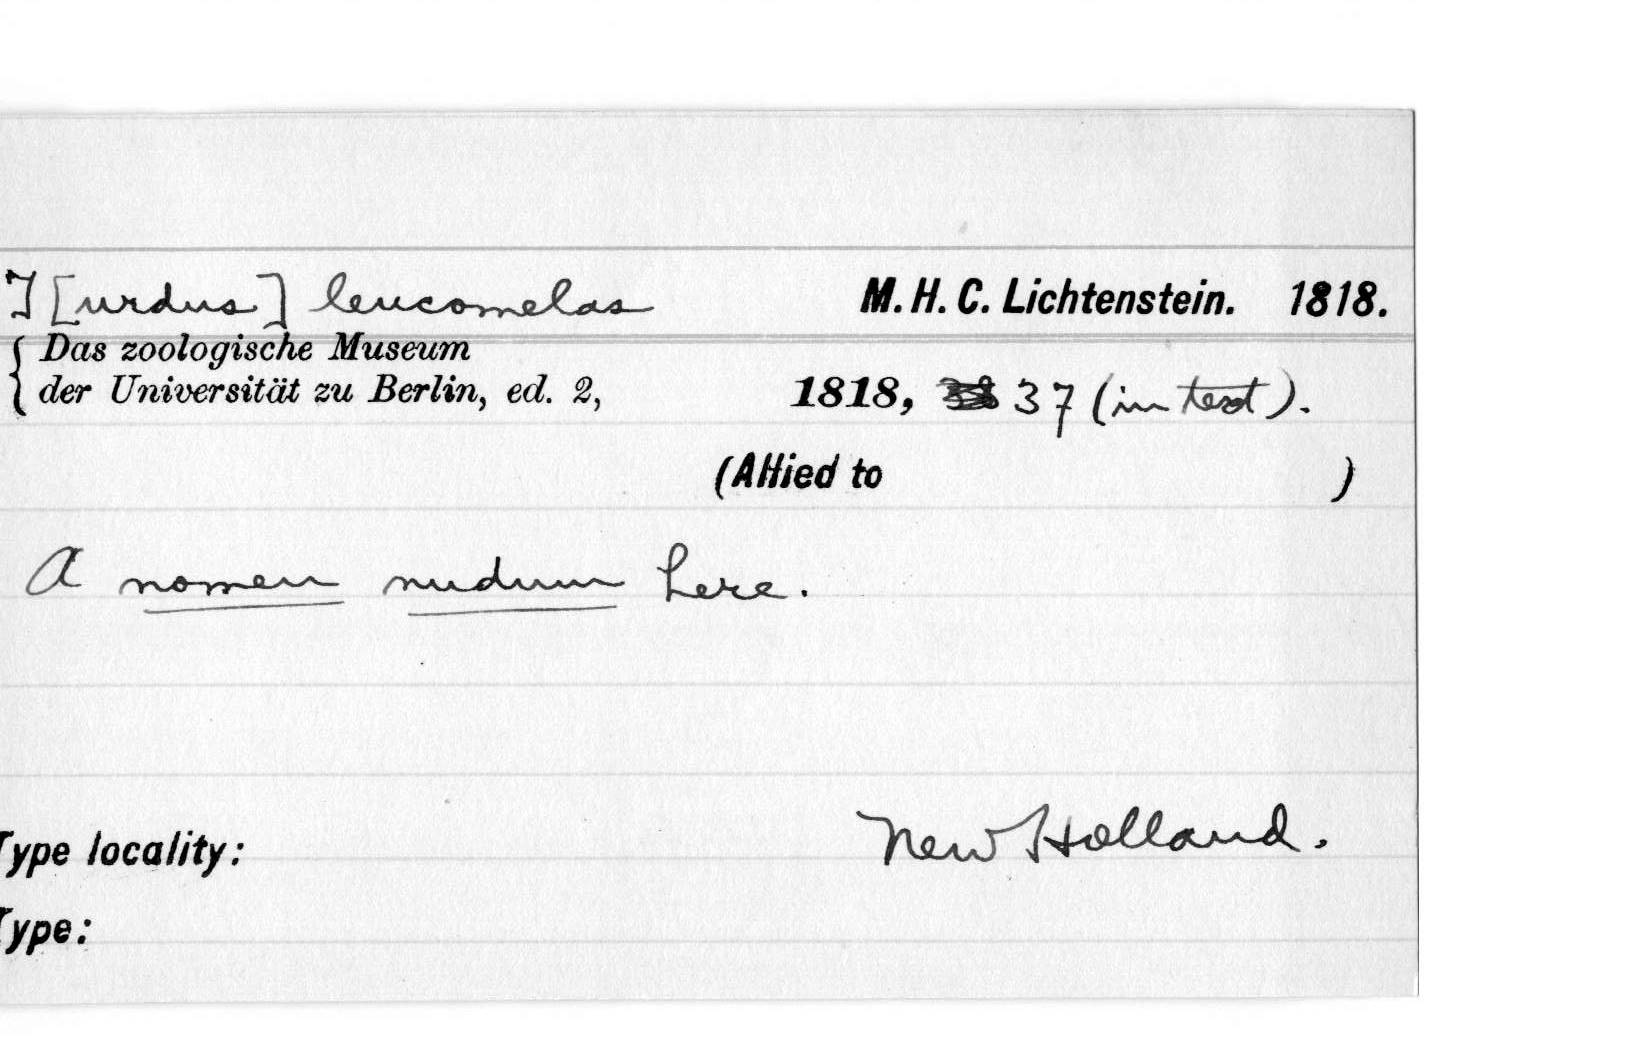 T[urdus] leucomelas M. H. C. Lichtenstein. 1818.
{ Das zoologische Museum
der Universität zu Berlin, ed. 2, 1818, 37 (in text).
(Allied to )
A nomen nudum here.
Type locality: New Holland.
Type: